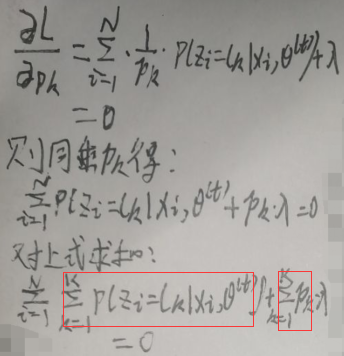 ∂L/∂pₖ = Σᵢ₌₁ᴺ · 1/pₖ · P(zᵢ=Cₖ|xᵢ,θ⁽ᵗ⁾)+λ
=0
则同乘pₖ得：
Σᵢ₌₁ᴺ P(zᵢ=Cₖ|xᵢ,θ⁽ᵗ⁾+pₖ·λ=0
对上式求和：
Σᵢ₌₁ᴺ Σₖ₌₁ᴷ P(zᵢ=Cₖ|xᵢ,θ⁽ᵗ⁾)+Σₖ₌₁ᴷ pₖ·λ
=0